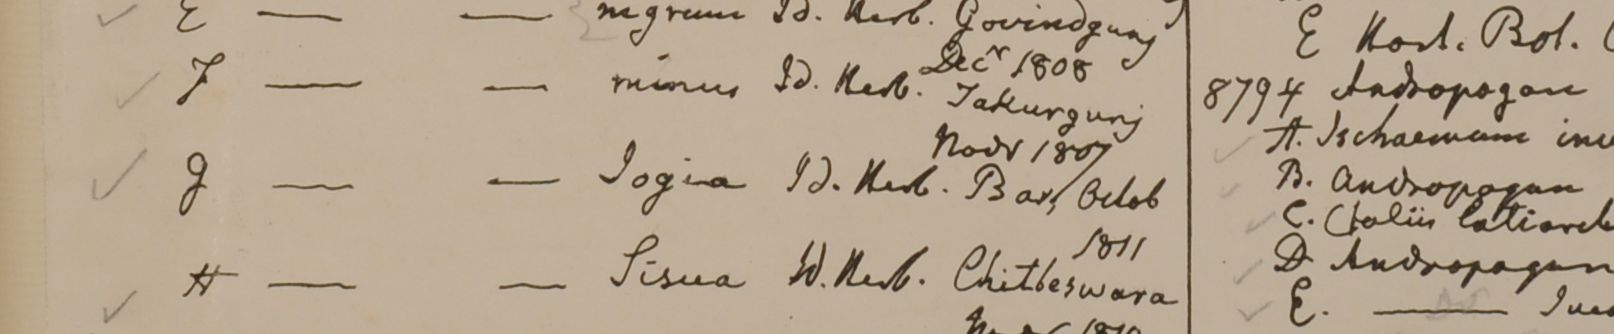 E — — nigrum Id. Herb. Govindgunj
Decr 1808
F — — minus Id. Herb. Takurgunj
Novr 1807
G — — Jogia Id. Herb. Bar, Octob
1811
H — — Sisua Id. Herb. Chitleswara
1810
E Hort. Bot.
8794 Andropogon
A. Ischaemum
B. Andropogon
C. foliis
D Andropogon
E. —